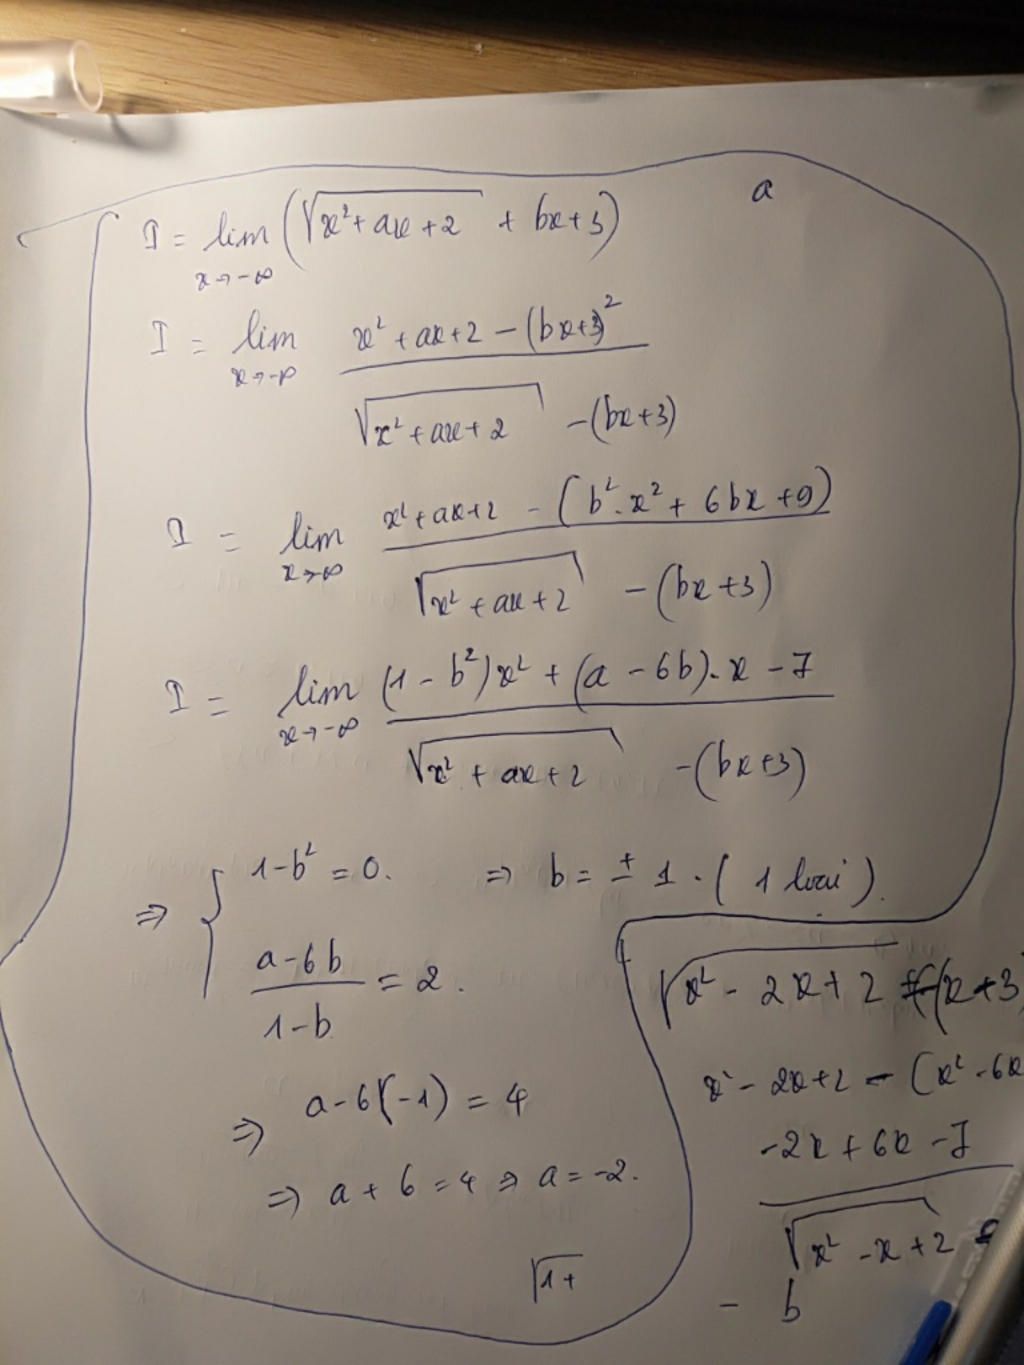 a
I = lim (√(x²+ax+2) + bx+3)
x→-∞
I = lim x²+ax+2-(bx+3)²
x→-∞ √(x²+ax+2) -(bx+3)
I = lim x²+ax+2 - (b².x² + 6bx +9)
x→∞ √(x²+ax+2) -(bx+3)
I = lim (1-b²)x² + (a-6b).x -7
x→-∞ √(x²+ax+2) -(bx+3)
⇒ { 1-b² = 0. ⇒ b = ± 1 . ( 1 loại ).
a-6b / 1-b = 2.
⇒ a-6(-1) = 4
⇒ a + 6 = 4 ⇒ a = -2.
√1+
√(x² - 2x+2) (x+3)
x² - 2x+2 - (x² -6x
-2x + 6x -7
√(x² -x +2)
- b